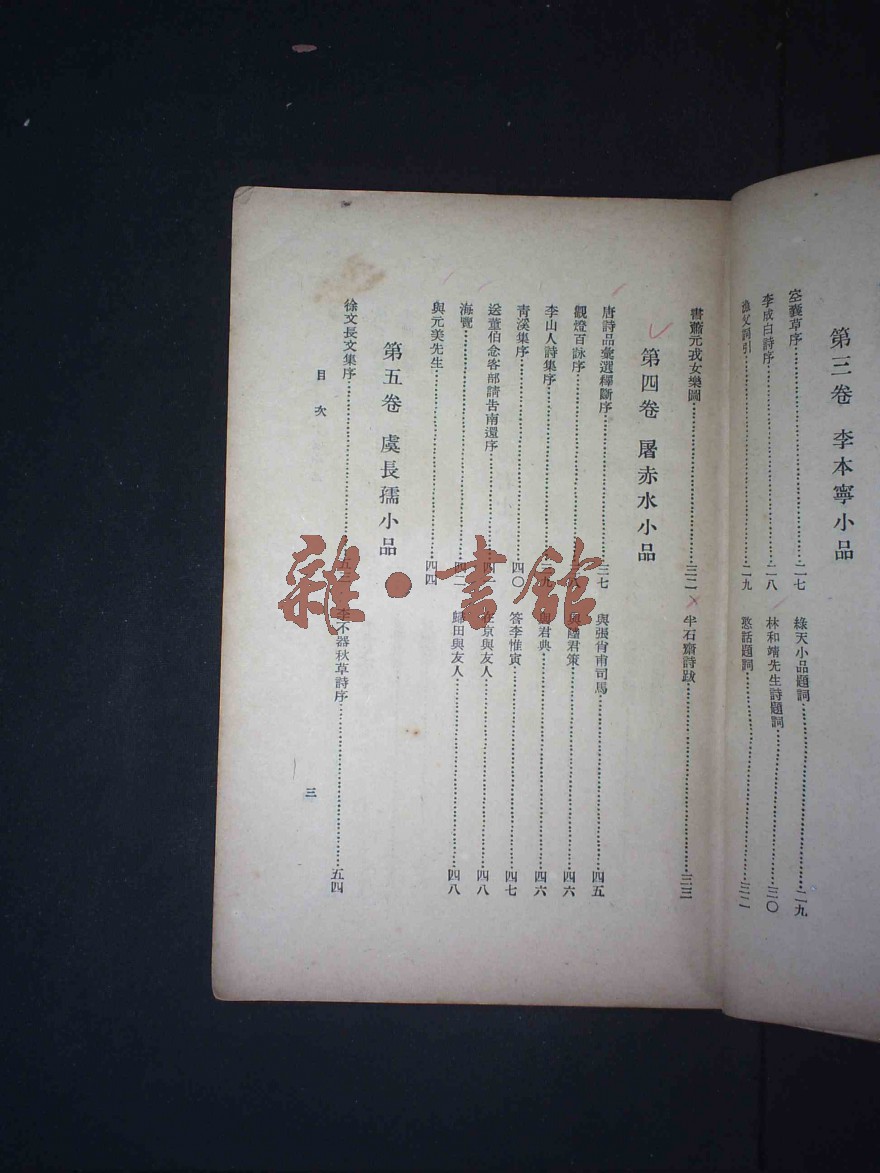 第三卷 李本寧小品
空囊草序……二七
綠天小品題詞……二九
李成白詩序……二八
林和靖先生詩題詞……三〇
漁父詞引……二九
憨話題詞……三二
書蕭元戎女樂圖……三二
半石齋詩跋……三三
第四卷 屠赤水小品
唐詩品彙選釋斷序……三七
與張肖甫司馬……四五
觀燈百詠序……八
君策……四六
李山人詩集序……九
君典……四六
青溪集序……四〇
答李惟寅……四七
送董伯念客部請告南還序……四
在京與友人……四八
海覽……四二
歸田與友人……四八
與元美先生……四四
第五卷 虞長孺小品
徐文長文集序……五
李不器秋草詩序……五四
目次
三
雜·書館